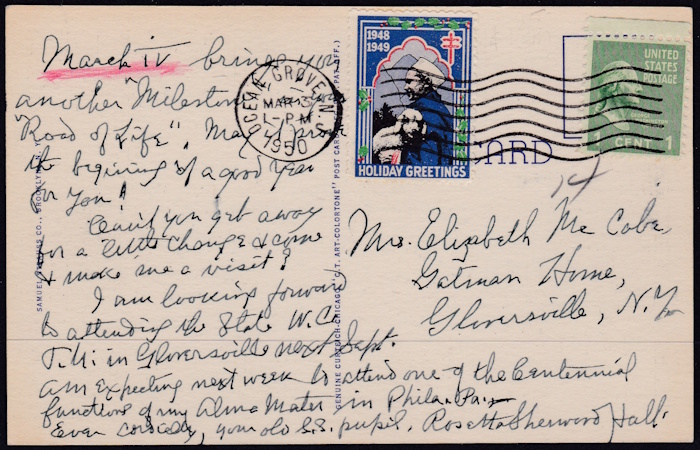 March IV brings you
another "Milestone
"Road of Life". May it prove
the begining of a good year
for you!
Can't you get away
for a little change & come
& make me a visit?
I am looking forward
to attending the State W.C.
T.U. in Gloversville next Sept.
am expecting next week to attend one of the Centennial
functions of my Alma Mater in Phila. Pa.
Ever cordially, your old S.S. pupil. Rosetta Sherwood Hall.
Mrs. Elizabeth Mc Cabe,
Gatman Home,
Gloversville, N.Y.
OCEAN GROVE, N.
MAR 3
1-PM
1950
1948
1949
HOLIDAY GREETINGS
UNITED
STATES
POSTAGE
1 CENT 1
CARD
SAMUEL
CO., BROOKLYN, N.Y.
GENUINE CURTEICH-CHICAGO "C.T. ART-COLORTONE" POST CARD
PAT. OFF.)